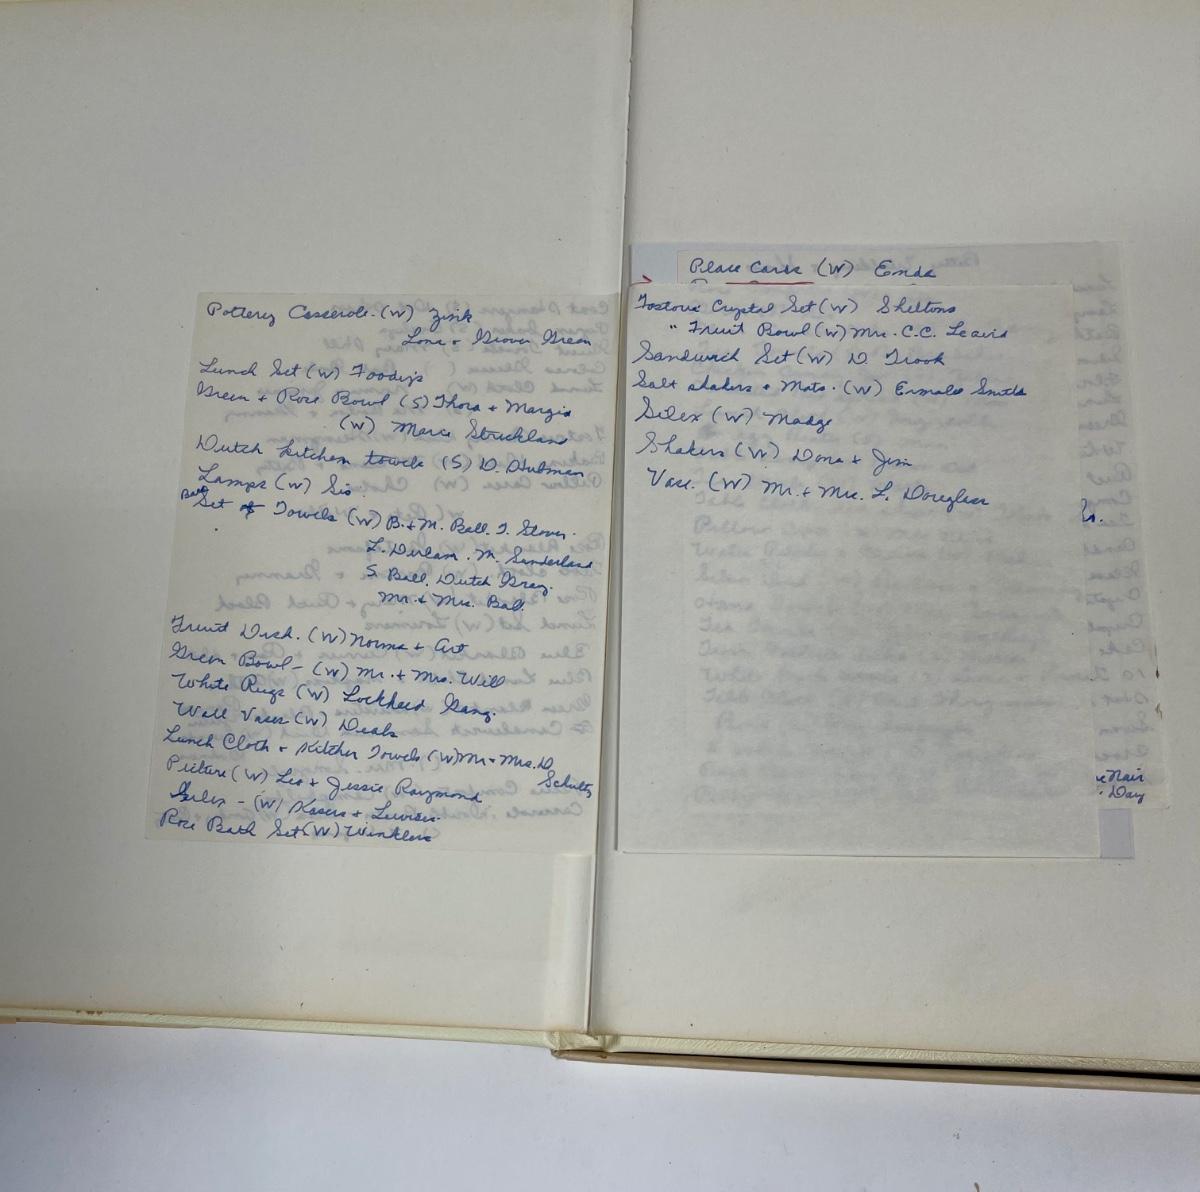 Pottery Casserole. (W) Zink
Lone + Grover Green
Lunch Set (W) Foody's
Green + Rose Bowl (S) Thora + Margie
(W) Marie Strickland
Dutch kitchen towels (S) D. Hulman
Lamps (W) Sis.
Bath
Set of Towels (W) B. + M. Ball. T. Stover.
L. Dirlam. M. Sunderland
S. Ball. Dutch Gray.
Mr. + Mrs. Ball.
Fruit Dish. (W) Norma + Art
Green Bowl - (W) Mr. + Mrs. Will
White Rugs (W) Lockheed Gang.
Wall Vases (W) Deals
Lunch Cloth + Kitchen Towels (W) Mr + Mrs. D.
Schultz
Picture (W) Leo + Jessie Raymond
Silex - (W) Kasers +
Rose Bath Set (W) Winklers
Place Cards (W) Emda
Fostoria Crystal Set (W) Sheltons
" Fruit Bowl (W) Mrs. C.C. Leavid
Sandwich Set (W) D. Trook
Salt shakers + Mats. (W) Ermale Smith
Silex (W) Madge
Shakers (W) Dona + Jim
Vase. (W) Mr. + Mrs. L. Douglass
Nair
Day